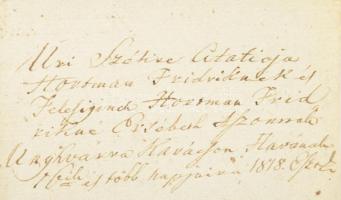 Uri Székre Citatioja
Hortman Fridriknek és
Feleséginek Hortman Frid
rikne Ersébeth Aszonnak
Unghvárra Karácson Havának
és több napjaira 1818. Eszt: